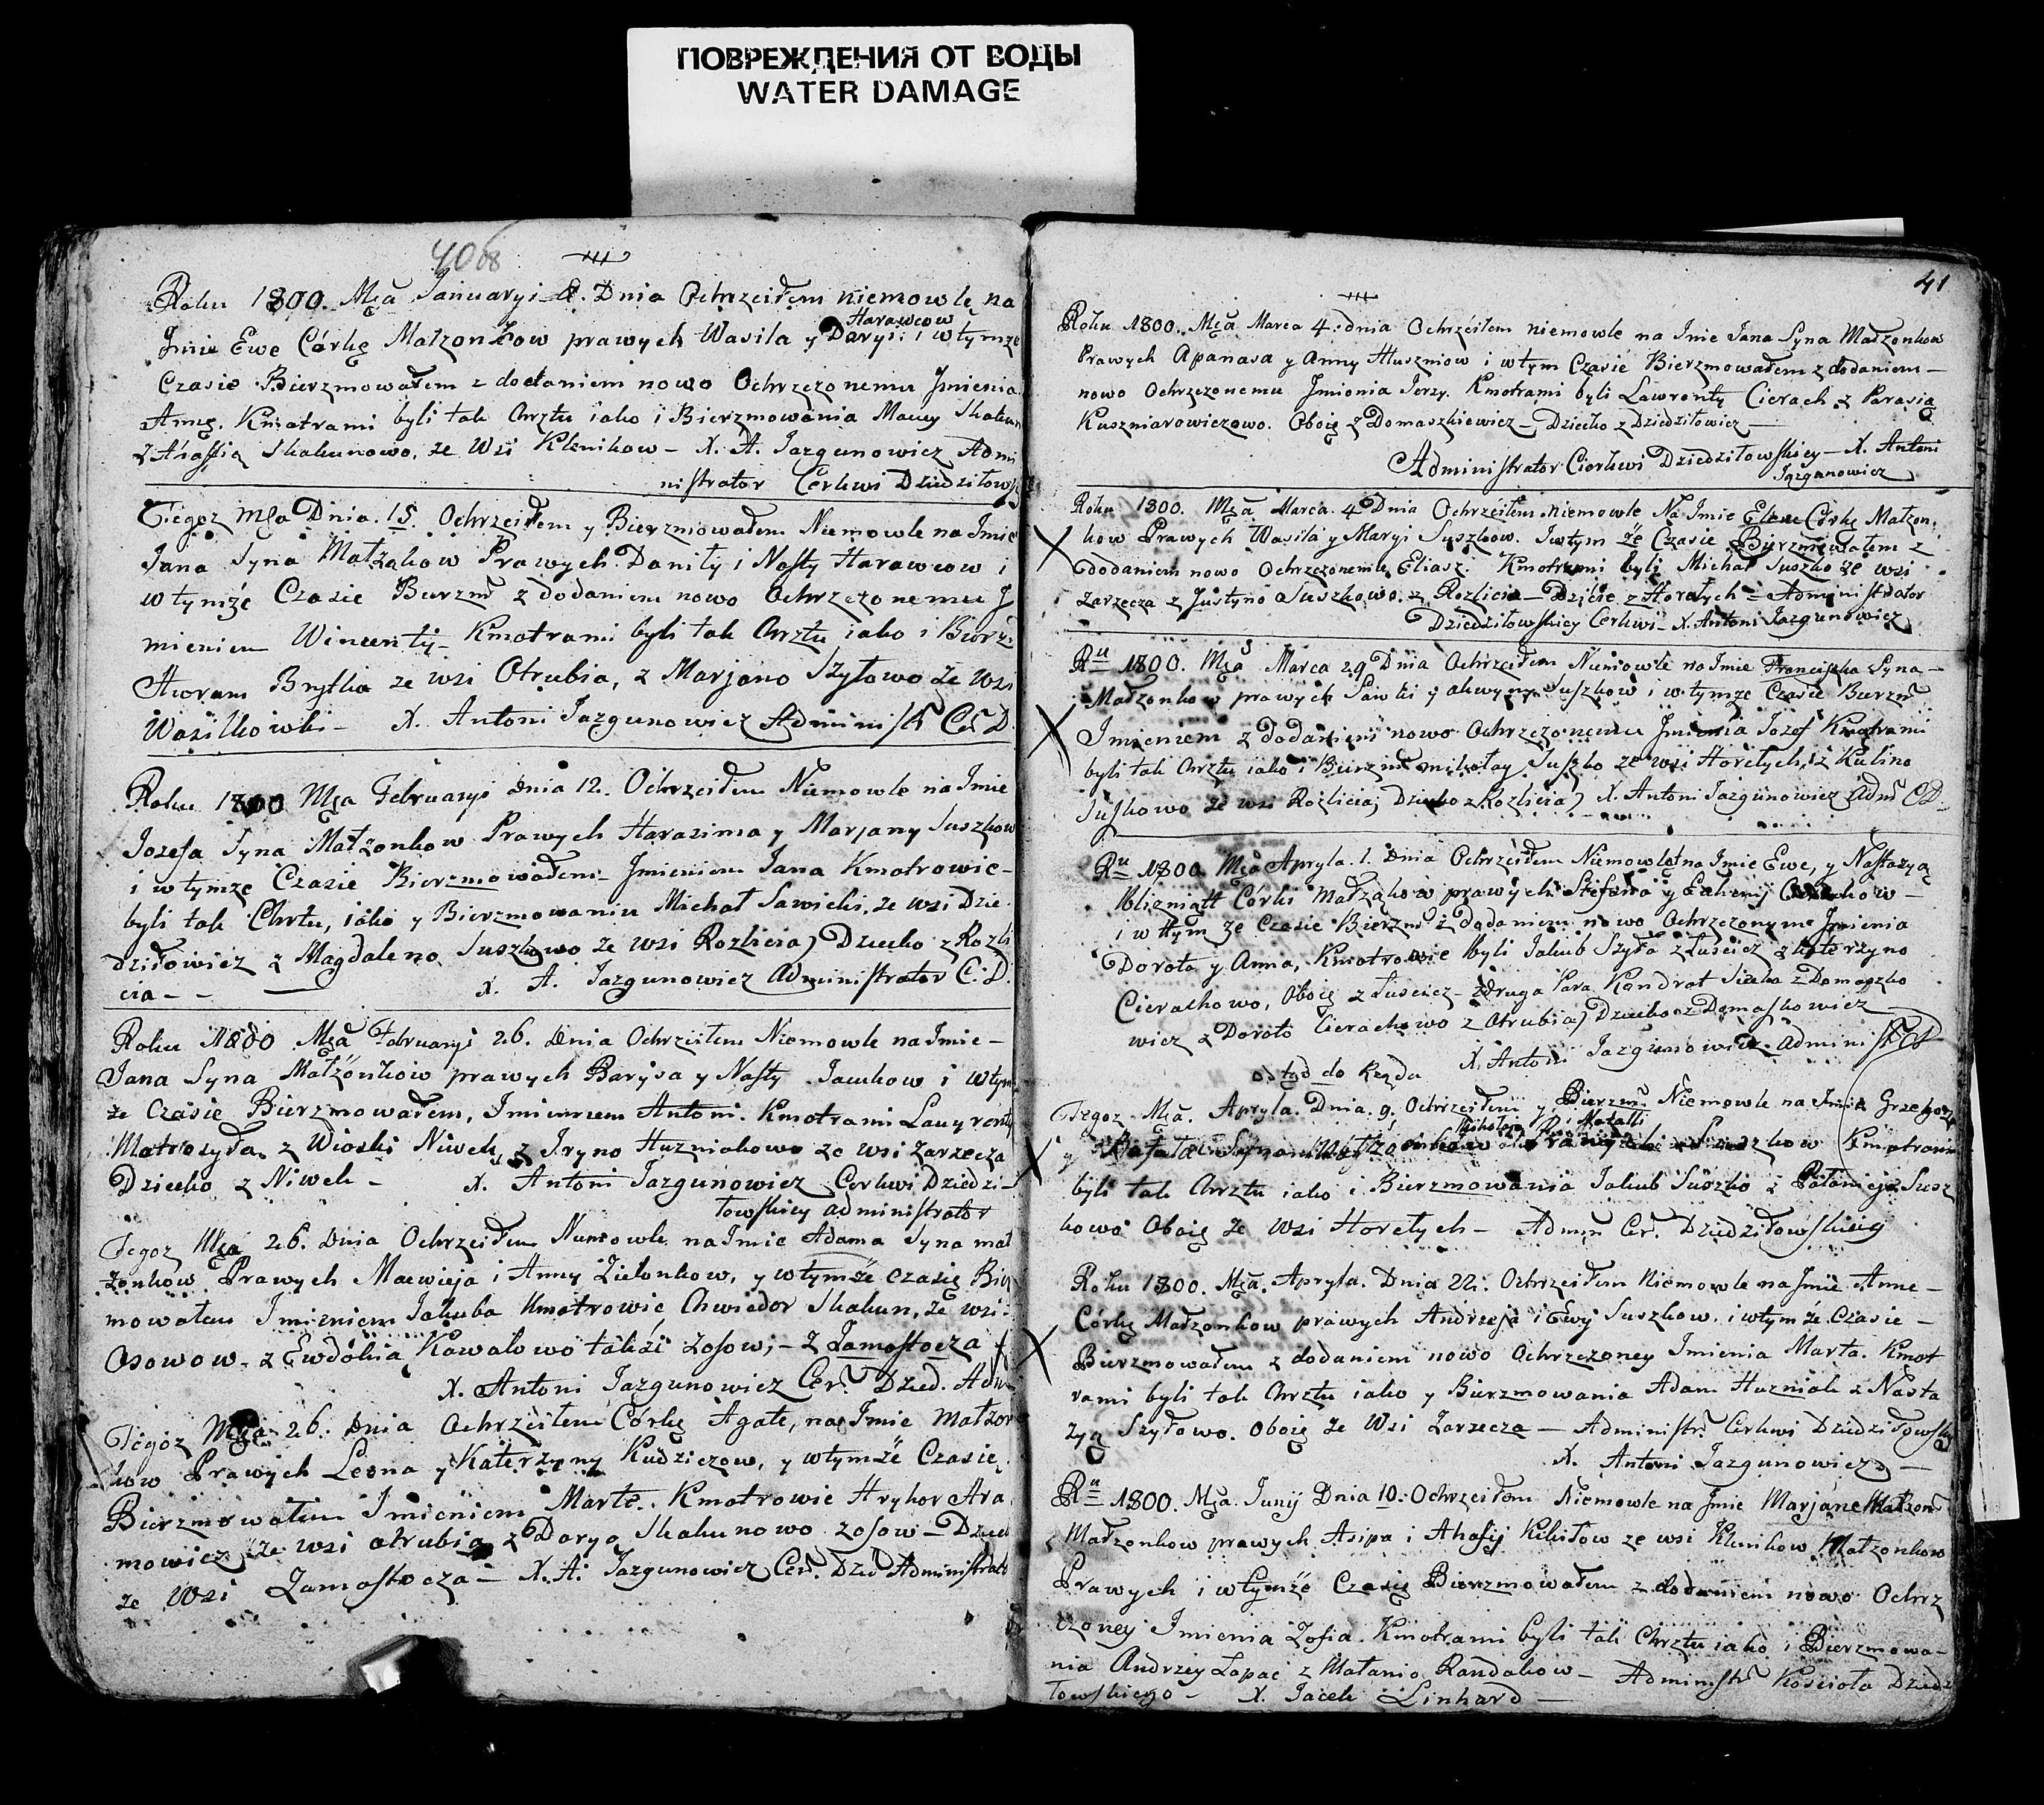 ПОВРЕЖДЕНИЯ ОТ ВОДЫ
WATER DAMAGE
40
Roku 1800. Mca Januaryi Dnia Ochrzciłem niemowle na
Harawcow
Jmie Ewe Córkę Małzonkow prawych Wasila y Daryi i wtymże
Czasie Bierzmowałem z dodaniem nowo Ochrzczonemu Jmienia
Annę. Kmotrami byli tak Chrztu iako i Bierzmowania Maciey Skakun
z Ahafią Skakunowo, ze Wsi Klenikow – X. A. Jazgunowicz Admi
nistrator Cerkwi Dziedziłow
Tegoz Mca Dnia 15. Ochrzciłem y Bierzmowałem Niemowle na Jmie
Jana Syna Małżąkow Prawych Daniły i Nasty Harawcow i
wtymże Czasie Bierzm z dodaniem nowo Ochrzczonemu J
mieniem Wincenty – Kmotrami byli tak Chrztu iako i Bierz
Awram Brytka ze wsi Otrubia, z Marjano Szyłowo ze Wsi
Wasilkowki – X. Antoni Jazgunowicz Administr Ce D.
Roku 1800 Mca Februaryi dnia 12. Ochrzciłem Niemowle na Jmie
Jozefa Syna Małzonkow Prawych Harasima y Marjany Suszkow
i wtymze Czasie Bierzmowałem Jmieniem Jana Kmotrowie –
byli tak Chrtu, iako y Bierzmowaniu Michał Sawicki, ze wsi Dzie
dziłowicz z Magdaleno Suszkowo ze wsi Rozlicia) Dziecko z Rozli
cia – – X. A. Jazgunowicz Administrator C. D.
Roku 1800 Mca Februaryi 26. dnia Ochrzciłem Niemowle na Jmie –
Jana Syna Małżonkow prawych Barysa y Nasty Jackow i wtym
że Czasie Bierzmowałem, Jmieniem Antoni. Kmotrami Lawrenty
Matrosyła z Wioski Niwek, z Jryno Huzniakowo ze wsi Zarzecza
Dziecko z Niwek – X. Antoni Jazgunowicz Cerkwi Dziedzi–
łowskiey administrator
Tegoz Mca 26. Dnia Ochrzciłem Niemowle na Jmie Adama Syna mał
żonkow Prawych Macwieja i Anny Zielonkow, y wtymże czasie Bierz
mowałem Jmieniem Jakuba Kmotrowie Chwiedor Skakun, ze wsi
Osowow – z Ewdokia Kowalowo takżi zosow; – z Zamostocza
X. Antoni Jazgunowicz Cer. Dzied. Adm
Tegoz Mca 26. Dnia Ochrzciłem Córkę Agate, na Jmie Małzon
kow Prawych Leona y Katerzyny Kudziczow, y wtymże Czasie
Bierzmowałem Jmieniem Marte. Kmotrowie Hryhor Ara
mowicz ze wsi otrubia z Daryo Skakunowo zosow – Dziec
ze Wsi Zamostocza – X. A. Jazgunowicz Cer. Dzied Administrato
41
Roku 1800. Mca Marca 4. dnia Ochrzciłem niemowle na Jmie Jana Syna Małzonkow
Prawych Apanasa y Anny Hluszniow i wtym Czasie Bierzmowałem z dodaniem –
nowo Ochrzczonemu Jmionia Jerzy. Kmotrami byli Lawronty Cierach z Parasią
Kuszniarowiczowo. Oboię z Domaszkiewicz – Dziecko z Dziedziłowicz –
Administrator Cierkwi Dziedziłowskiey – X. Antoni
Jazgunowicz
Roku 1800. Mca Marca. 4 Dnia Ochrzciłem Niemowle Na Jmie Elene Córkę Małzon
kow Prawych Wasila y Maryi Suszkow. Jwtym że Czasie Bierzmowałem z
dodaniem nowo Ochrzczonemu Eliasz. Kmotrami byli Michał Suszko ze wsi
Zarzecza z Justyno Suszkowo z Rozlicia – Dzicie z Horełych – Administrator
Dziedziłowskiey Cerkwi – X. Antoni Jazgunowicz
Ru 1800. Mca Marca 29 Dnia Ochrzciłem Niemowle na Jmie Franciszka Syna –
Małzonkow prawych Sawki y Suszkow i wtymze Czasie Bierzm
Jmieniem z dodaniem nowo Ochrzczonemu Jmienia Jozef Kmotrami
byli tak Chrztu iako i Bierzm mikołay Suszko ze wsi Horełych, z Kulino
Suszkowo ze wsi Rozlicia; Dziecko z Rozlicia) X. Antoni Jazgunowicz Adm C D
Ru 1800. Mca Apryla. 1. Dnia Ochrzciłem Niemowlęt na Jmie Ewe, y Nastazyą
Blizniątt Córki Małżąkow prawych Stefana y Cierachow –
i wttym ze Czasie Bierzm z Dodaniem nowo Ochrzczonym Jmienia
Dorota y Anna, Kmotrowie byli Jakub Szyła z Łusicz z Katerzyno
Cierachowo, Oboię z Łusicz – z druga Para Kandrat Siaka z Domaszko
wicz z Doroto Cierachowo z Otrubia) Dziecko z Domaszkowicz
X. Antoni Jazgunowicz Administr C D
od tąd do Rządu
Tegoz Mca. Apryla. Dnia 9. Ochrzciłem y Bierzm Niemowle na Jmie Grzegorz
Mikołaja Natalli
y Rafała Syna Małżonkow Suszkow Kmotrami
byli tak Chrztu iako i Bierzmowania Jakub Suszko z Połonieją Susz
kowo Oboię ze Wsi Horełych – Admin Cer. Dziedziłowskiey
Roku 1800. Mca. Apryla. Dnia 22. Ochrzciłem Niemowle na Jmie Anne –
Córkę Małzonkow prawych Andrzeja i Ewy Suszkow. i wtym że Czasie –
Bierzmowałem z dodaniem nowo Ochrzczoney Jmienia Marta. Kmot
rami byli tak Chrztu iako y Bierzmowania Adam Huzniak z Nasta
zyą Szyłowo. Oboię ze Wsi Zarzecza – Administr. Cerkwi Dziedziłowskey
X. Antoni Jazgunowicz –
Ru 1800. Mca. Junij Dnia 10. Ochrzciłem Niemowle na Jmie Marjane Małzon
Małzonkow prawych Asipa i Ahafij Kikiłow ze wsi Klenikow Małzonkow
Prawych i wtymże Czasie Bierzmowałem z dodaniem nowo Ochrz
czoney Jmienia Zofia. Kmotrami byli tak Chrztu iako i Bierzmowa–
nia Andrzey Łapac z Małanio Randakow – Administr Kościoła Dziedzi
łowskiego – X. Jacek Linhard –